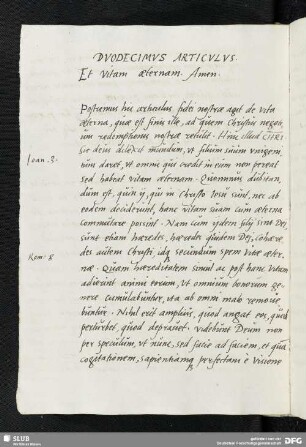 DVODECIMVS ARTICVLVS.
Et Vitam æternam. Amen.
Postremus hic articulus fidei nostræ agit de vita
æterna, quæ est finis ille, ad quem Christus negoti-
um redemptionis nostræ retulit. Hinc illud
Ioan. 3.
Sic deus dilexit mundum, vt filium suum vnigeni-
tum daret, vt omnis qui credit in eum non pereat
sed habeat vitam æternam. Quamuis dubitan-
dum est, quin ij, qui in Christo Iesu sunt, nec ab
eodem deciderunt, hanc vitam suam cum æterna
commutare possint. Nam cum ijdem filij sint Dei,
Rom: 8.
sunt etiam hæredes, hæredes quidem Dei, cohære-
des autem Christi, idq secundum spem vitæ æter-
næ. Quam hæreditatem simul ac post hanc vitam
adierint animi eorum, vt omnium bonorum ge-
nere cumulabuntur, ita ab omni malo
buntur. Nihil erit amplius, quod angat eos, quod
perturbet, quod deprauet. Videbunt Deum non
per speculum, vt nunc, sed facie ad faciem, et eius
cogitationem, sapientiamq perfectam è visione
SLUB
DFG